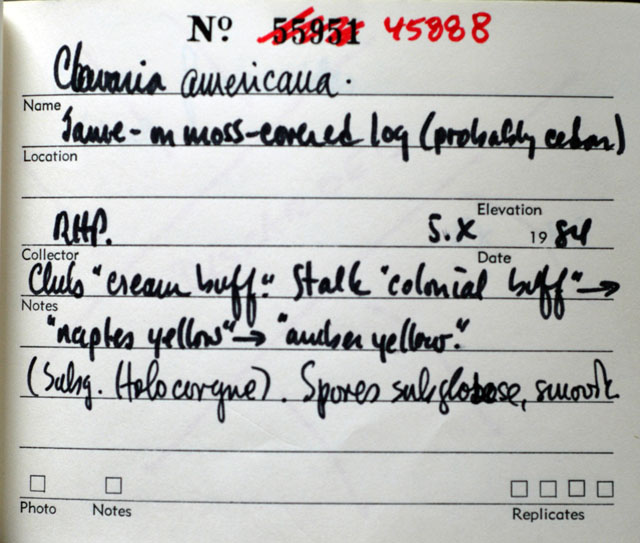 Nº 55951 45888
Clavaria americana.
Name
Same - on moss-covered log (probably cedar)
Location
Elevation
RHP. 5.X 1984
Collector Date
Clubs "cream buff." Stalk "colonial buff" →
Notes
"naples yellow" → "amber yellow."
(Subg. Holocoryne). Spores subglobose, smooth
Photo Notes Replicates